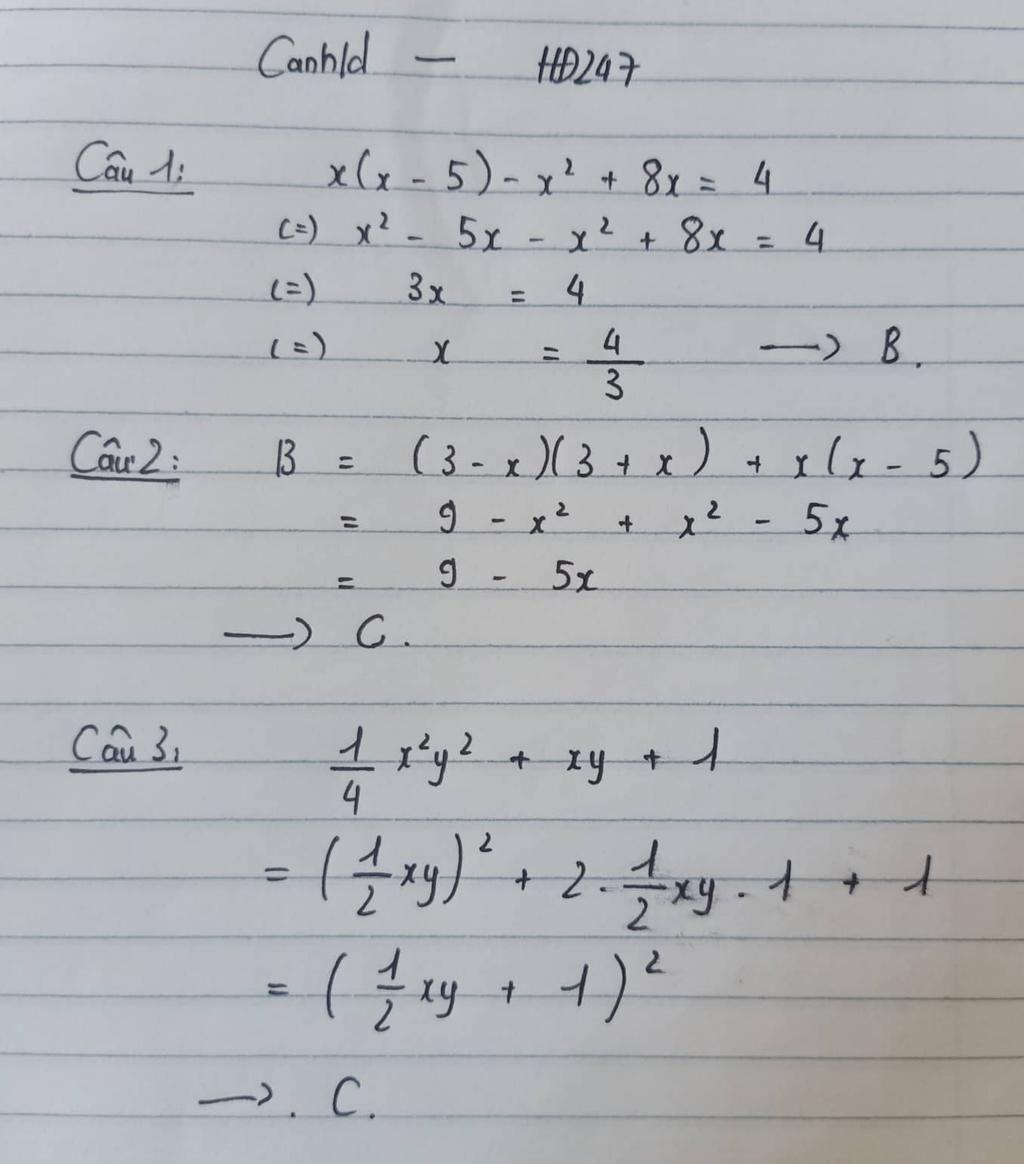 Canhld - HĐ247
Câu 1: x(x - 5) - x² + 8x = 4
(=) x² - 5x - x² + 8x = 4
(=) 3x = 4
(=) x = 4/3 → B.
Câu 2: B = (3 - x)(3 + x) + x(x - 5)
= 9 - x² + x² - 5x
= 9 - 5x
→ C.
Câu 3: 1/4 x²y² + xy + 1
= (1/2 xy)² + 2 . 1/2 xy . 1 + 1
= (1/2 xy + 1)²
→ . C.